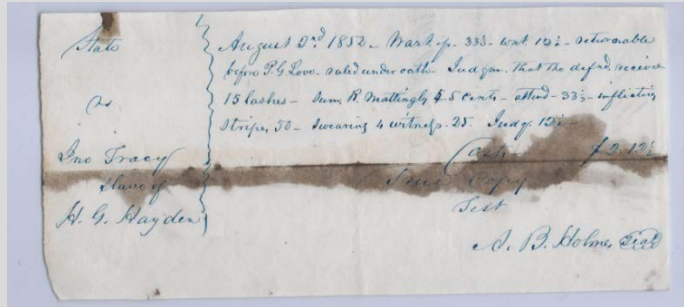 State
vs
Jno Tracy
Slave of
H. G. Hayden
August 2nd 1852 – Warrt ip. 33⅓ – wrt. 12½ – returnable
before P. G. Love – ruled under oath – Judgm. that the defnd. recieve
15 lashes – Sum. R. Mattingly $5 cents – attend – 33⅓ – inflicting
Stripes 50 – Swearing 4 witness. 25. Judg. 12½ –
Costs $2.12½
True Copy
Test
A. B. Holmes